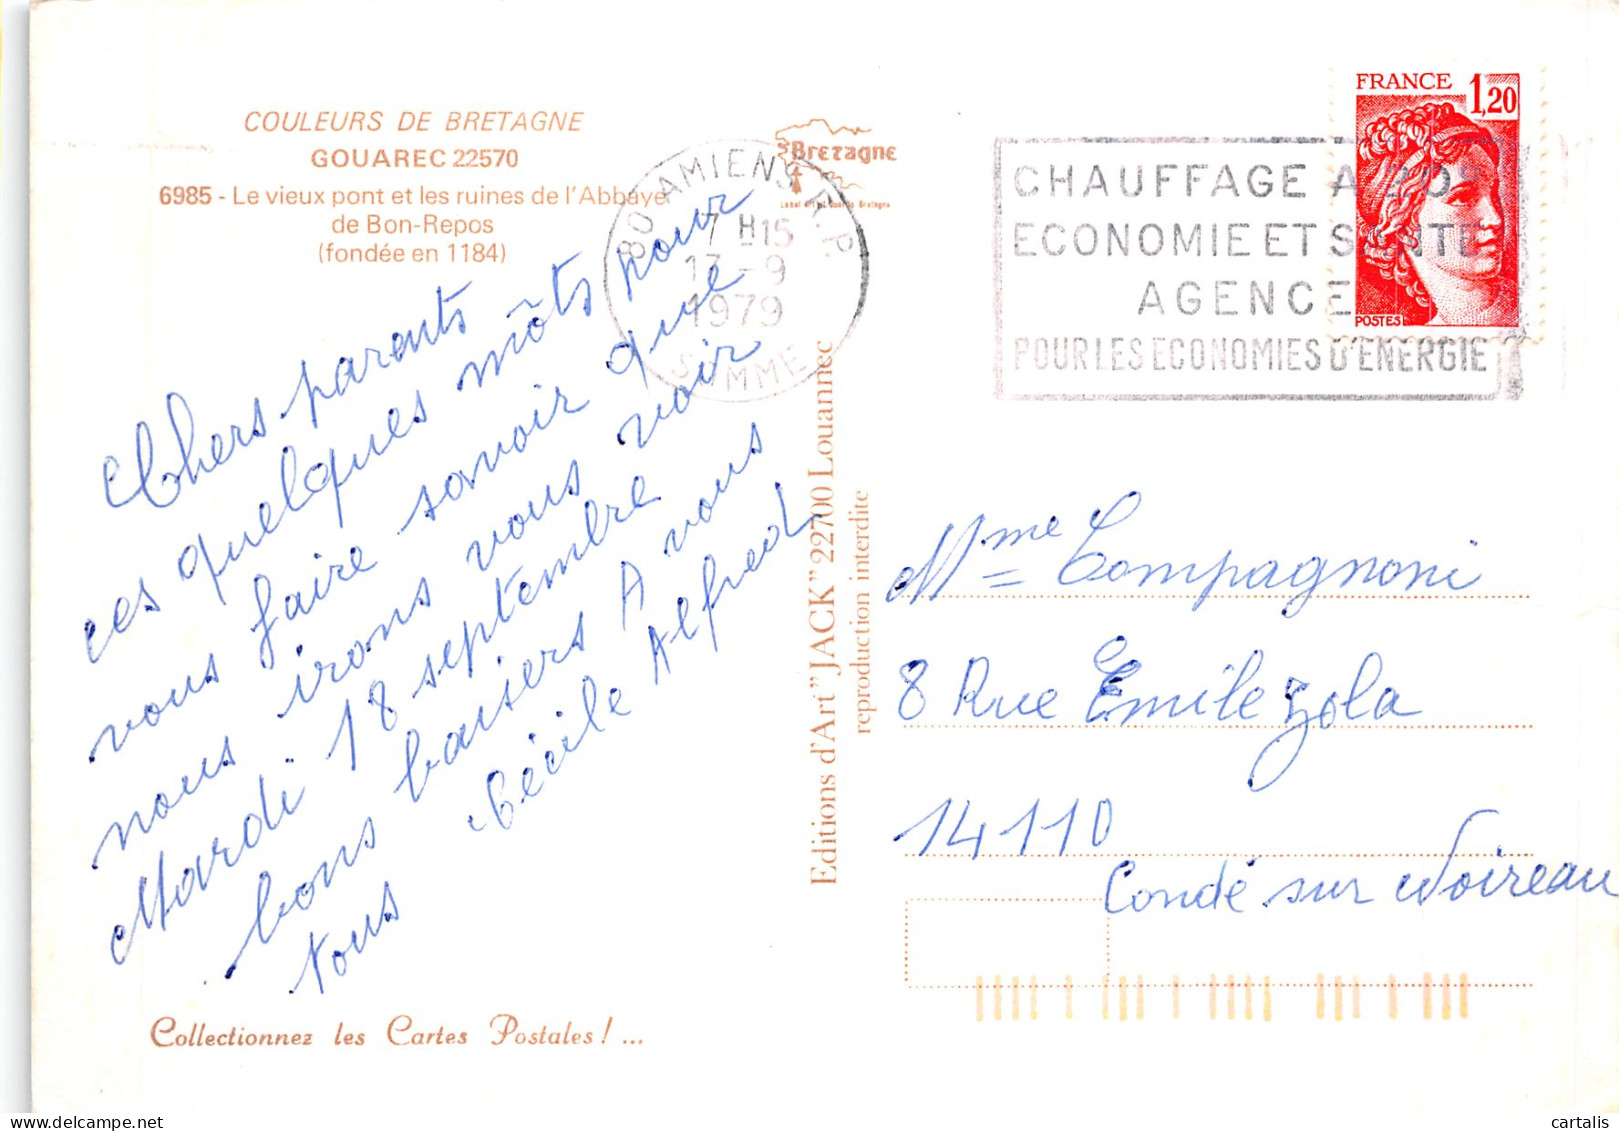 COULEURS DE BRETAGNE
GOUAREC 22570
6985 - Le vieux pont et les ruines de l'Abbaye
de Bon-Repos
(fondée en 1184)
Bretagne
80 AMIENS R.P.
7 H15
17 - 9
1979
SOMME
CHAUFFAGE A BOIS
ECONOMIE ET SANTE
AGENCE
POUR LES ECONOMIES D'ENERGIE
FRANCE 1,20
POSTES
Chers parents
ces quelques môts pour
vous faire savoir que
nous irons vous voir
Mardi 18 septembre
bons baisers A vous
tous
Cécile Alfred
Editions d'Art "JACK" 22700 Louannec
reproduction interdite
Mme Compagnoni
8 Rue Emile Zola
14110
Condé sur Noireau
Collectionnez les Cartes Postales ! ...
cartalis